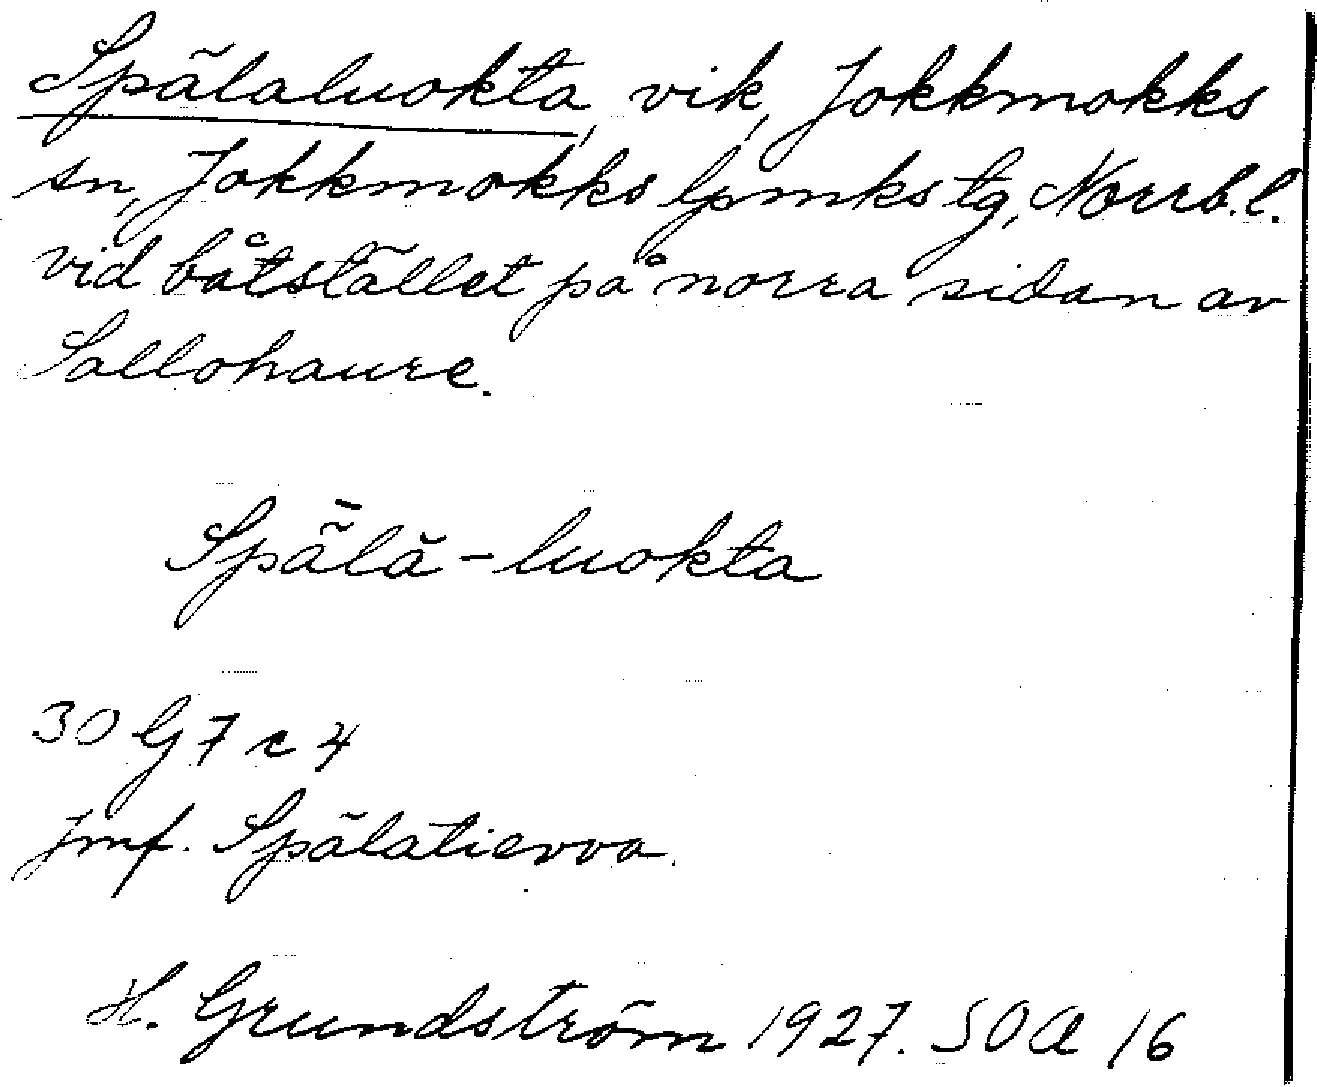 Spälaluokta, vik, Jokkmokks
sn, Jokkmokks lpmks tg, Norrb. l.
vid båtstället på norra sidan av
Sallohaure.
Spǟlă-luokta
30 G 7 c 4
Jmf. Spälatievva.
H. Grundström 1927. SOA 16